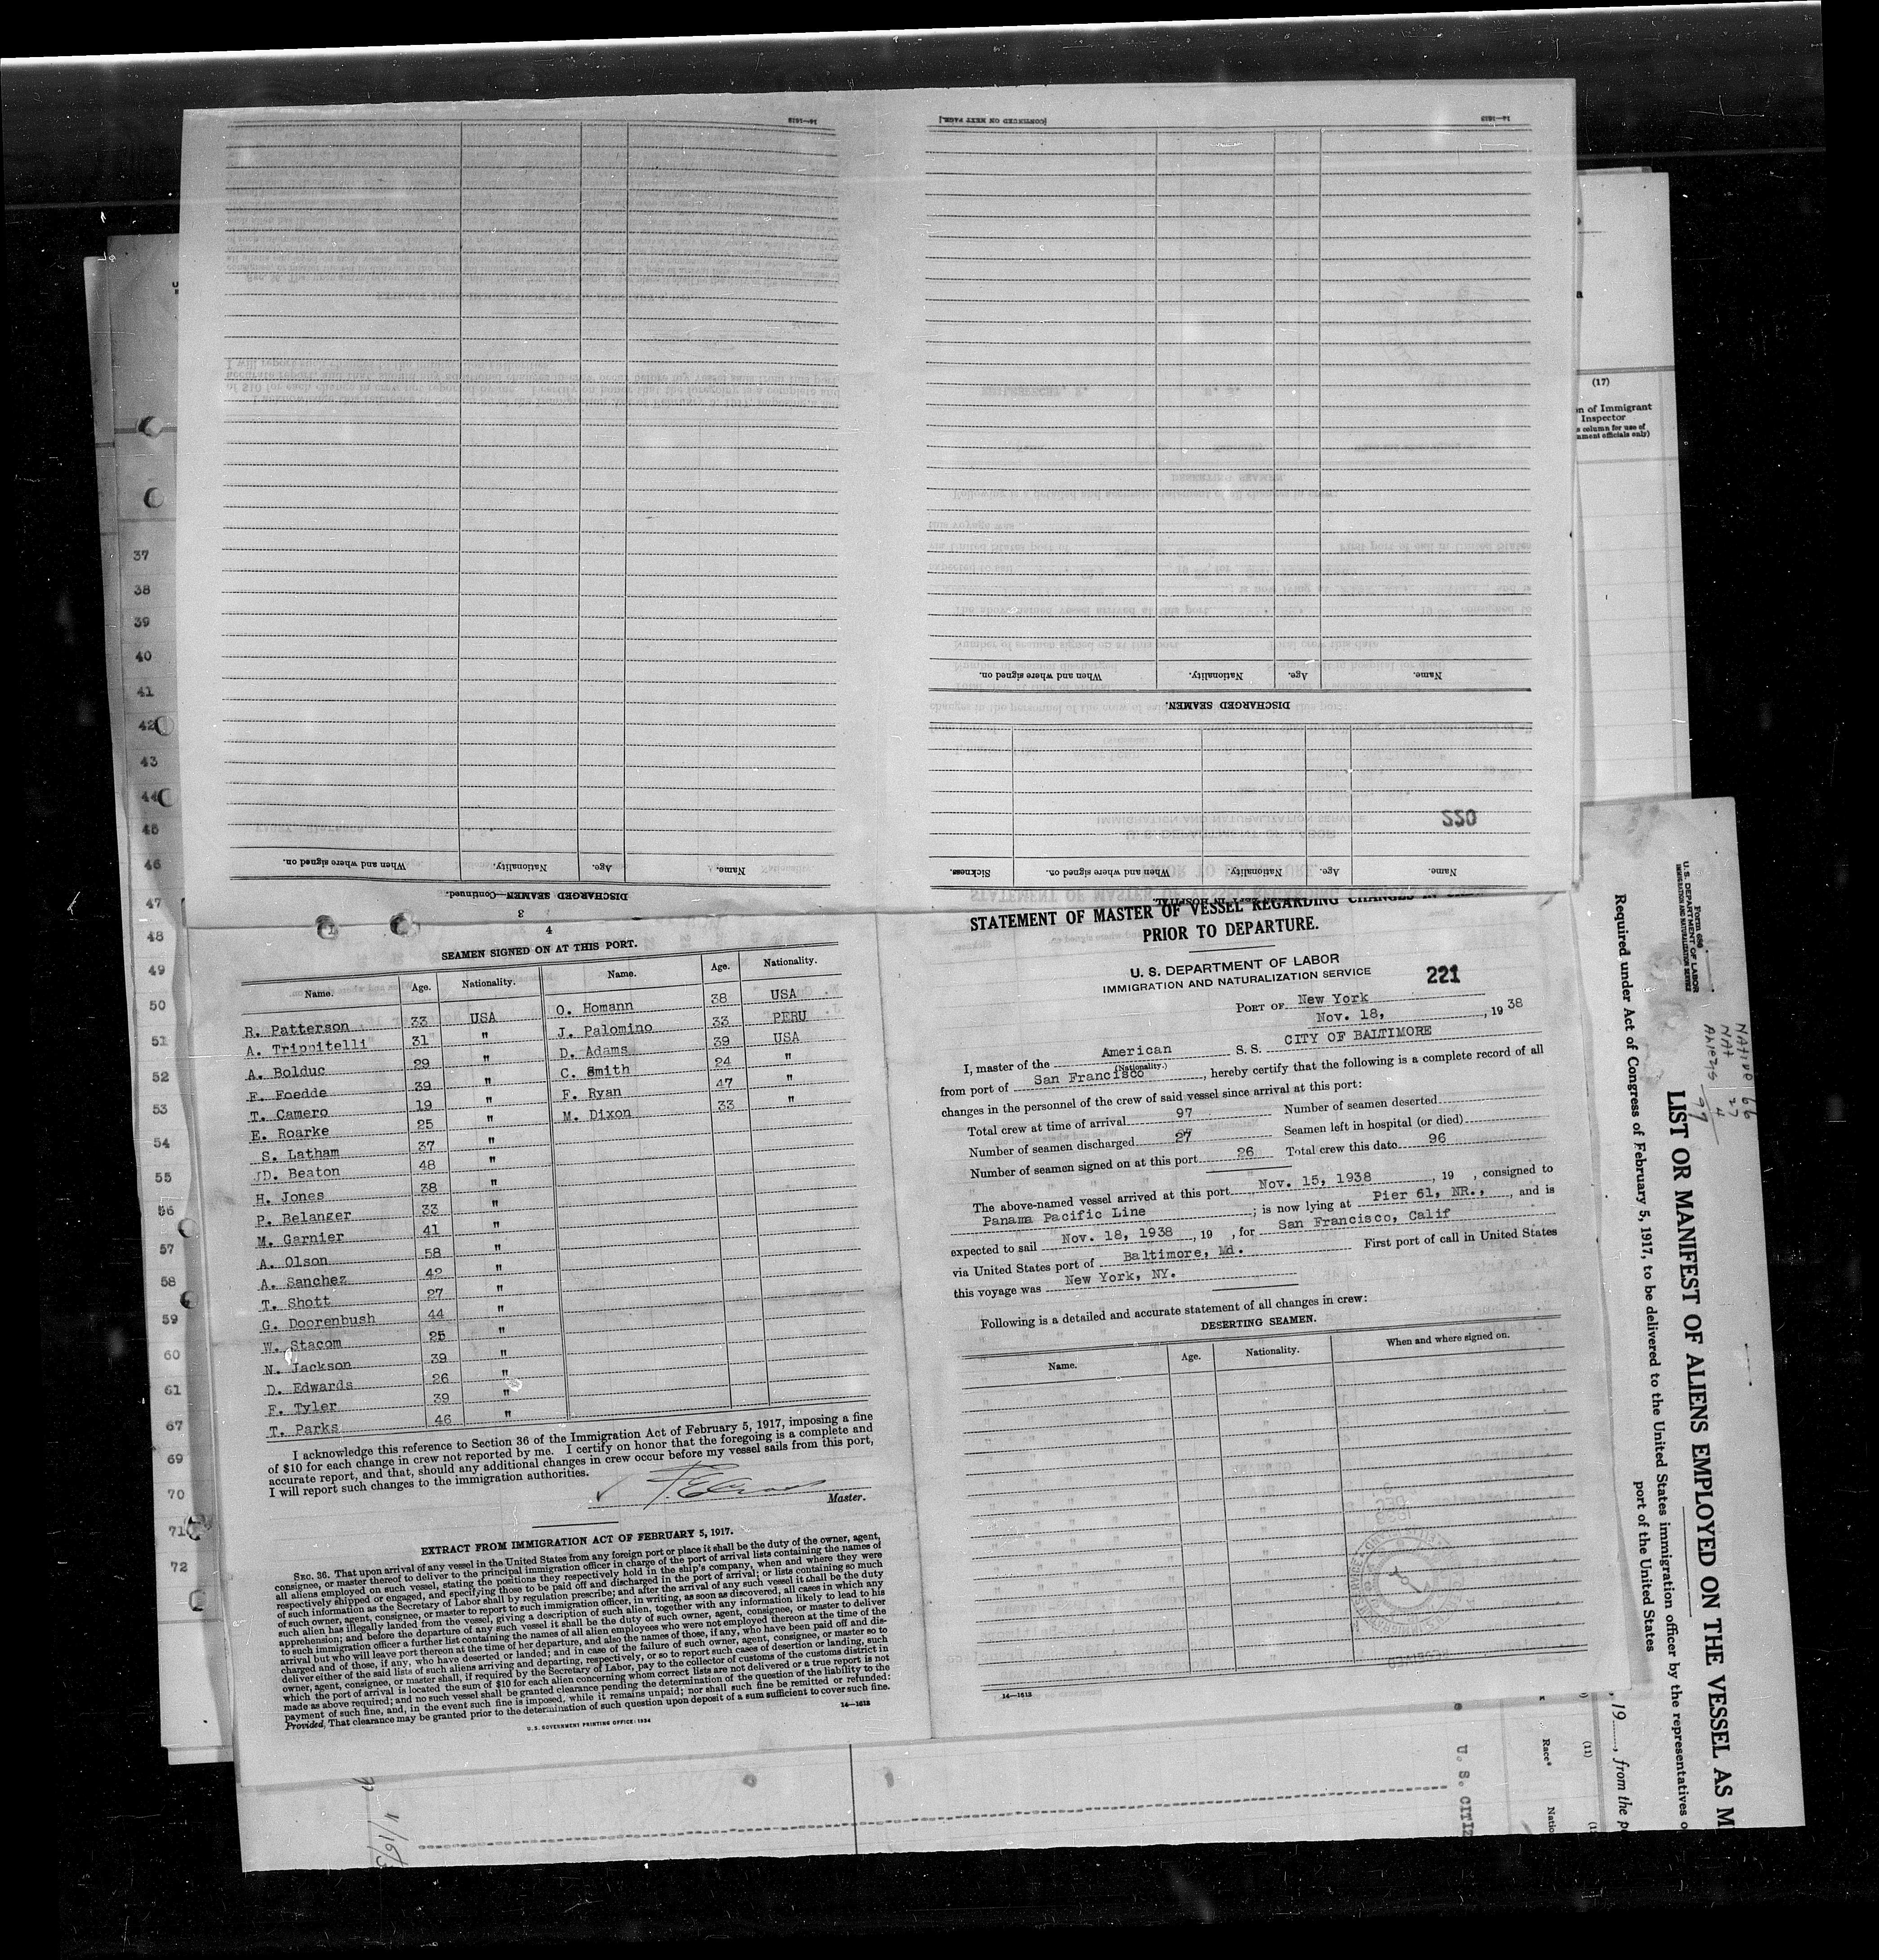 14—1613
[CONTINUED ON NEXT PAGE.]
14—1613
When and where signed on.
Nationality.
Age.
Name.
DISCHARGED SEAMEN.
220
When and where signed on.
Nationality.
Age.
Name.
DISCHARGED SEAMEN—Continued.
3
Sickness.
When and where signed on.
Nationality.
Age.
Name.
(17)
n of Immigrant
Inspector
s column for use of
nment officials only)
37
38
39
40
41
42
43
44
45
46
47
48
49
50
51
52
53
54
55
56
57
58
59
60
61
67
69
70
71
72
4
SEAMEN SIGNED ON AT THIS PORT.
Name. Age. Nationality. Name. Age. Nationality.
R. Patterson 33 USA O. Homann 38 USA
A. Trippitelli 31 " J. Palomino 33 PERU
A. Bolduc 29 " D. Adams 39 USA
F. Foedde 39 " C. Smith 24 "
T. Camero 19 " F. Ryan 47 "
E. Roarke 25 " M. Dixon 33 "
S. Latham 37 "
JD. Beaton 48 "
H. Jones 38 "
P. Belanger 33 "
M. Garnier 41 "
A. Olson 58 "
A. Sanchez 42 "
T. Shott 27 "
G. Doorenbush 44 "
W. Stacom 25 "
N. Jackson 39 "
D. Edwards 26 "
F. Tyler 39 "
T. Parks 46 "
I acknowledge this reference to Section 36 of the Immigration Act of February 5, 1917, imposing a fine
of $10 for each change in crew not reported by me. I certify on honor that the foregoing is a complete and
accurate report, and that, should any additional changes in crew occur before my vessel sails from this port,
I will report such changes to the immigration authorities.
Master.
EXTRACT FROM IMMIGRATION ACT OF FEBRUARY 5, 1917.
SEC. 36. That upon arrival of any vessel in the United States from any foreign port or place it shall be the duty of the owner, agent,
consignee, or master thereof to deliver to the principal immigration officer in charge of the port of arrival lists containing the names of
all aliens employed on such vessel, stating the positions they respectively hold in the ship's company, when and where they were
respectively shipped or engaged, and specifying those to be paid off and discharged in the port of arrival; or lists containing so much
of such information as the Secretary of Labor shall by regulation prescribe; and after the arrival of any such vessel it shall be the duty
of such owner, agent, consignee, or master to report to such immigration officer, in writing, as soon as discovered, all cases in which any
such alien has illegally landed from the vessel, giving a description of such alien, together with any information likely to lead to his
apprehension; and before the departure of any such vessel it shall be the duty of such owner, agent, consignee, or master to deliver
to such immigration officer a further list containing the names of all alien employees who were not employed thereon at the time of the
arrival but who will leave port thereon at the time of her departure, and also the names of those, if any, who have been paid off and dis-
charged and of those, if any, who have deserted or landed; and in case of the failure of such owner, agent, consignee, or master so to
deliver either of the said lists of such aliens arriving and departing, respectively, or so to report such cases of desertion or landing, such
owner, agent, consignee, or master shall, if required by the Secretary of Labor, pay to the collector of customs of the customs district in
which the port of arrival is located the sum of $10 for each alien concerning whom correct lists are not delivered or a true report is not
made as above required; and no such vessel shall be granted clearance pending the determination of the question of the liability to the
payment of such fine, and, in the event such fine is imposed, while it remains unpaid; nor shall such fine be remitted or refunded:
Provided, That clearance may be granted prior to the determination of such question upon deposit of a sum sufficient to cover such fine.
14—1613
U.S. GOVERNMENT PRINTING OFFICE: 1934
STATEMENT OF MASTER OF VESSEL REGARDING CHANGES IN
PRIOR TO DEPARTURE.
U. S. DEPARTMENT OF LABOR
IMMIGRATION AND NATURALIZATION SERVICE
221
PORT OF New York
Nov. 18, , 19 38
I, master of the American S. S. CITY OF BALTIMORE
(Nationality.)
from port of San Francisco , hereby certify that the following is a complete record of all
changes in the personnel of the crew of said vessel since arrival at this port:
Total crew at time of arrival 97 Number of seamen deserted
Number of seamen discharged 27 Seamen left in hospital (or died)
Number of seamen signed on at this port 26 Total crew this date 96
The above-named vessel arrived at this port Nov. 15, 1938 , 19 , consigned to
Panama Pacific Line ; is now lying at Pier 61, NR., , and is
expected to sail Nov. 18, 1938 , 19 , for San Francisco, Calif
via United States port of Baltimore, Md. First port of call in United States
this voyage was New York, NY.
Following is a detailed and accurate statement of all changes in crew:
DESERTING SEAMEN.
Name. Age. Nationality. When and where signed on.
14—1613
Form 686
U.S. DEPARTMENT OF LABOR
IMMIGRATION AND NATURALIZATION SERVICE
NATIVE 66
NAT 27
ALIENS 4
97
LIST OR MANIFEST OF ALIENS EMPLOYED ON THE VESSEL AS M
Required under Act of Congress of February 5, 1917, to be delivered to the United States immigration officer by the representatives o
port of the United States
, 19 , from the p
(11)
Race*
Natio
U. S. CITIZ
11/16/3